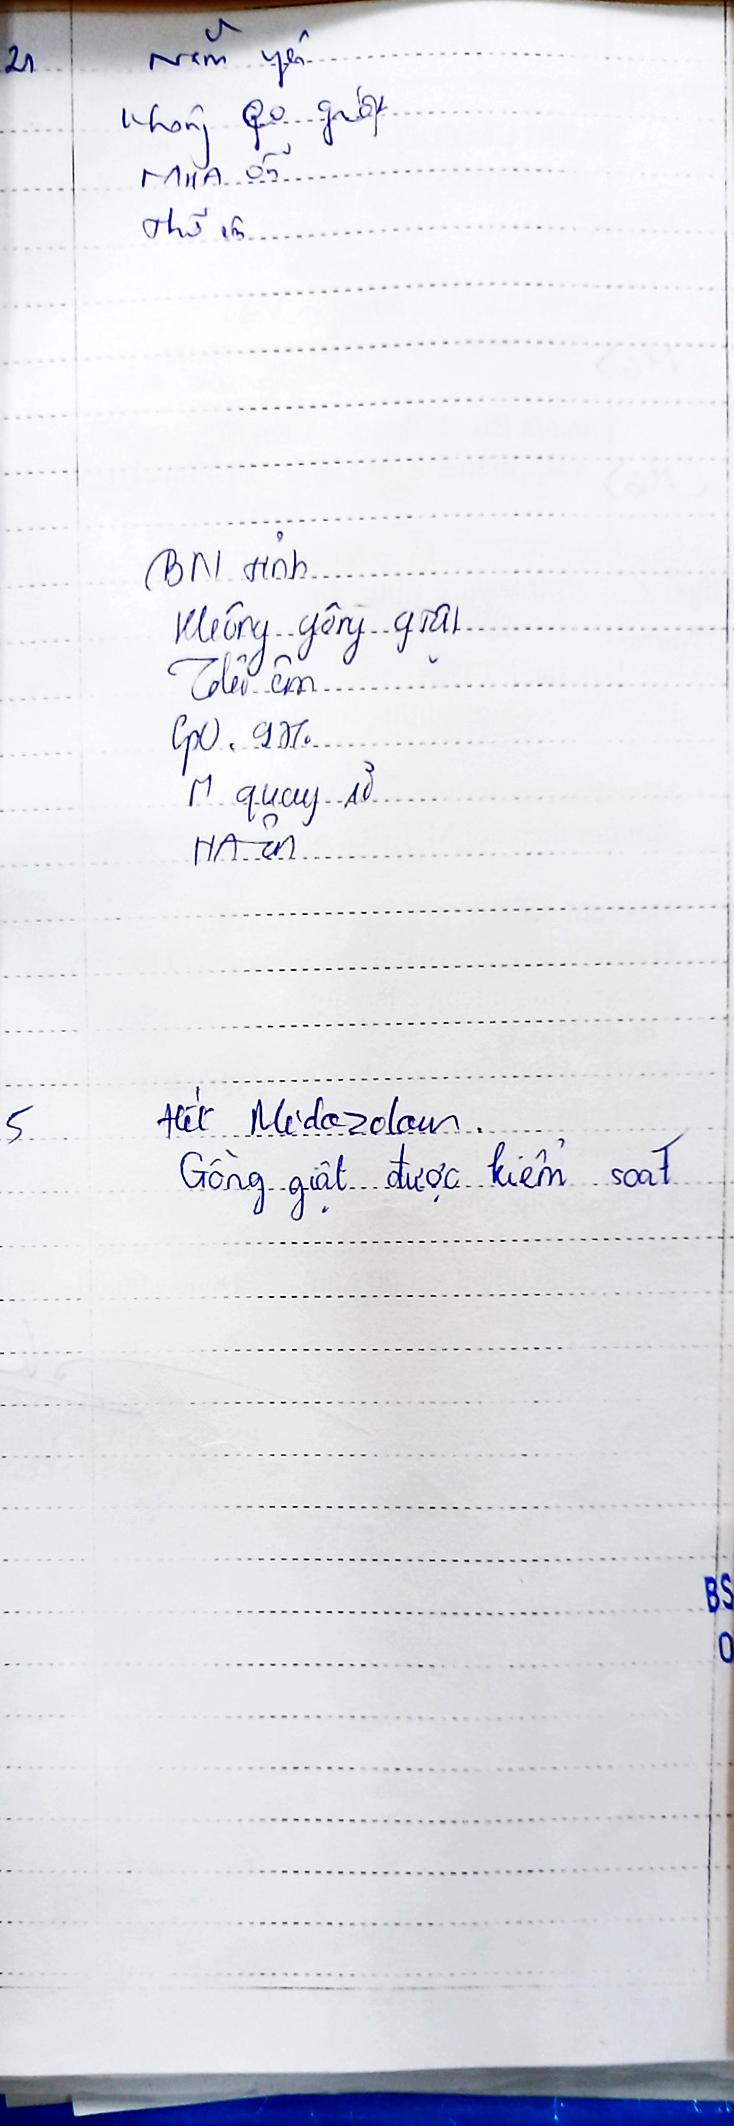 21 Nằm yên
Không co giật
MHA ổn
thở êm
BN tỉnh
Không gồng giật
Thở êm
SpO₂ 97%
M quay rõ
HA ổn
5 Hết Midazolam.
Gồng giật được kiểm soát
BS